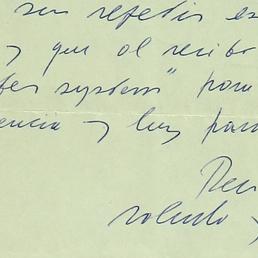 sin repetir es
y que al recibo
fer system" para
encia y luz para
Rec
saludo y